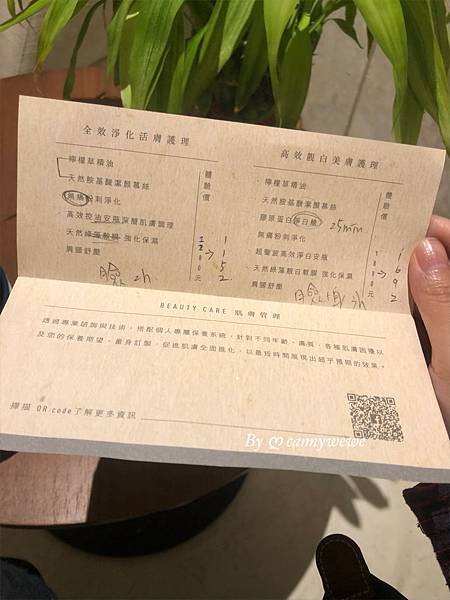 全效淨化活膚護理
檸檬草精油
天然胺基酸潔顏慕絲
無痛粉刺淨化
高效控油安瓶深醒肌膚調理
天然綠藻軟膜 強化保濕
肩頸舒壓
體驗價
臉 2h
高效靚白美膚護理
檸檬草精油
天然胺基酸潔顏慕絲
膠原蛋白淨白臉 25min
無痛粉刺淨化
超聲波高效淨白安瓶
天然綠藻靚白軟膜 強化保濕
肩頸舒壓
體驗價
BEAUTY CARE 肌膚管理
透過專業諮詢與技術，搭配個人專屬保養系統，針對不同年齡、膚質，各種肌膚困擾以
及您的保養期望，量身訂製，促進肌膚全面進化，以最短時間展現出超乎預期的效果。
掃描 QR code了解更多資訊
By ♡ cannywewe